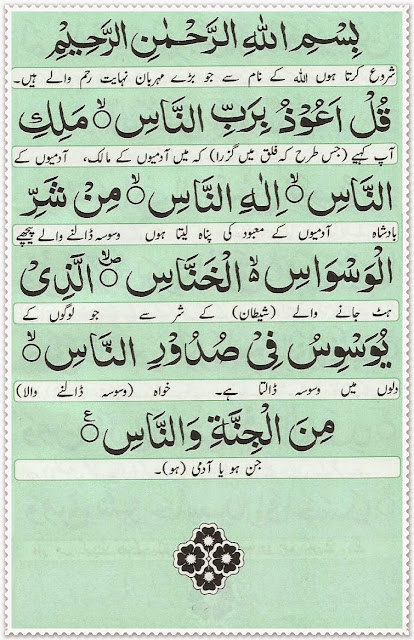 بِسْمِ اللهِ الرَّحْمٰنِ الرَّحِيْمِ
شروع کرتا ہوں اللہ کے نام سے جو بڑے مہربان نہایت رحم والے ہیں۔
قُلْ اَعُوْذُ بِرَبِّ النَّاسِ ۙ مَلِكِ
آپ کہیے (جس طرح کہ فلق میں گزرا) کہ میں آدمیوں کے مالک، آدمیوں کے
النَّاسِ ۙ اِلٰهِ النَّاسِ ۙ مِنْ شَرِّ
بادشاہ آدمیوں کے معبود کی پناہ لیتا ہوں وسوسہ ڈالنے والے پیچھے
الْوَسْوَاسِ ۙ الْخَنَّاسِ ۪ۙ الَّذِیْ
ہٹ جانے والے (شیطان) کے شر سے جو لوگوں کے
یُوَسْوِسُ فِیْ صُدُوْرِ النَّاسِ ۙ
دلوں میں وسوسہ ڈالتا ہے۔ خواہ (وسوسہ ڈالنے والا)
مِنَ الْجِنَّةِ وَالنَّاسِ ۠
جن ہو یا آدمی (ہو)۔